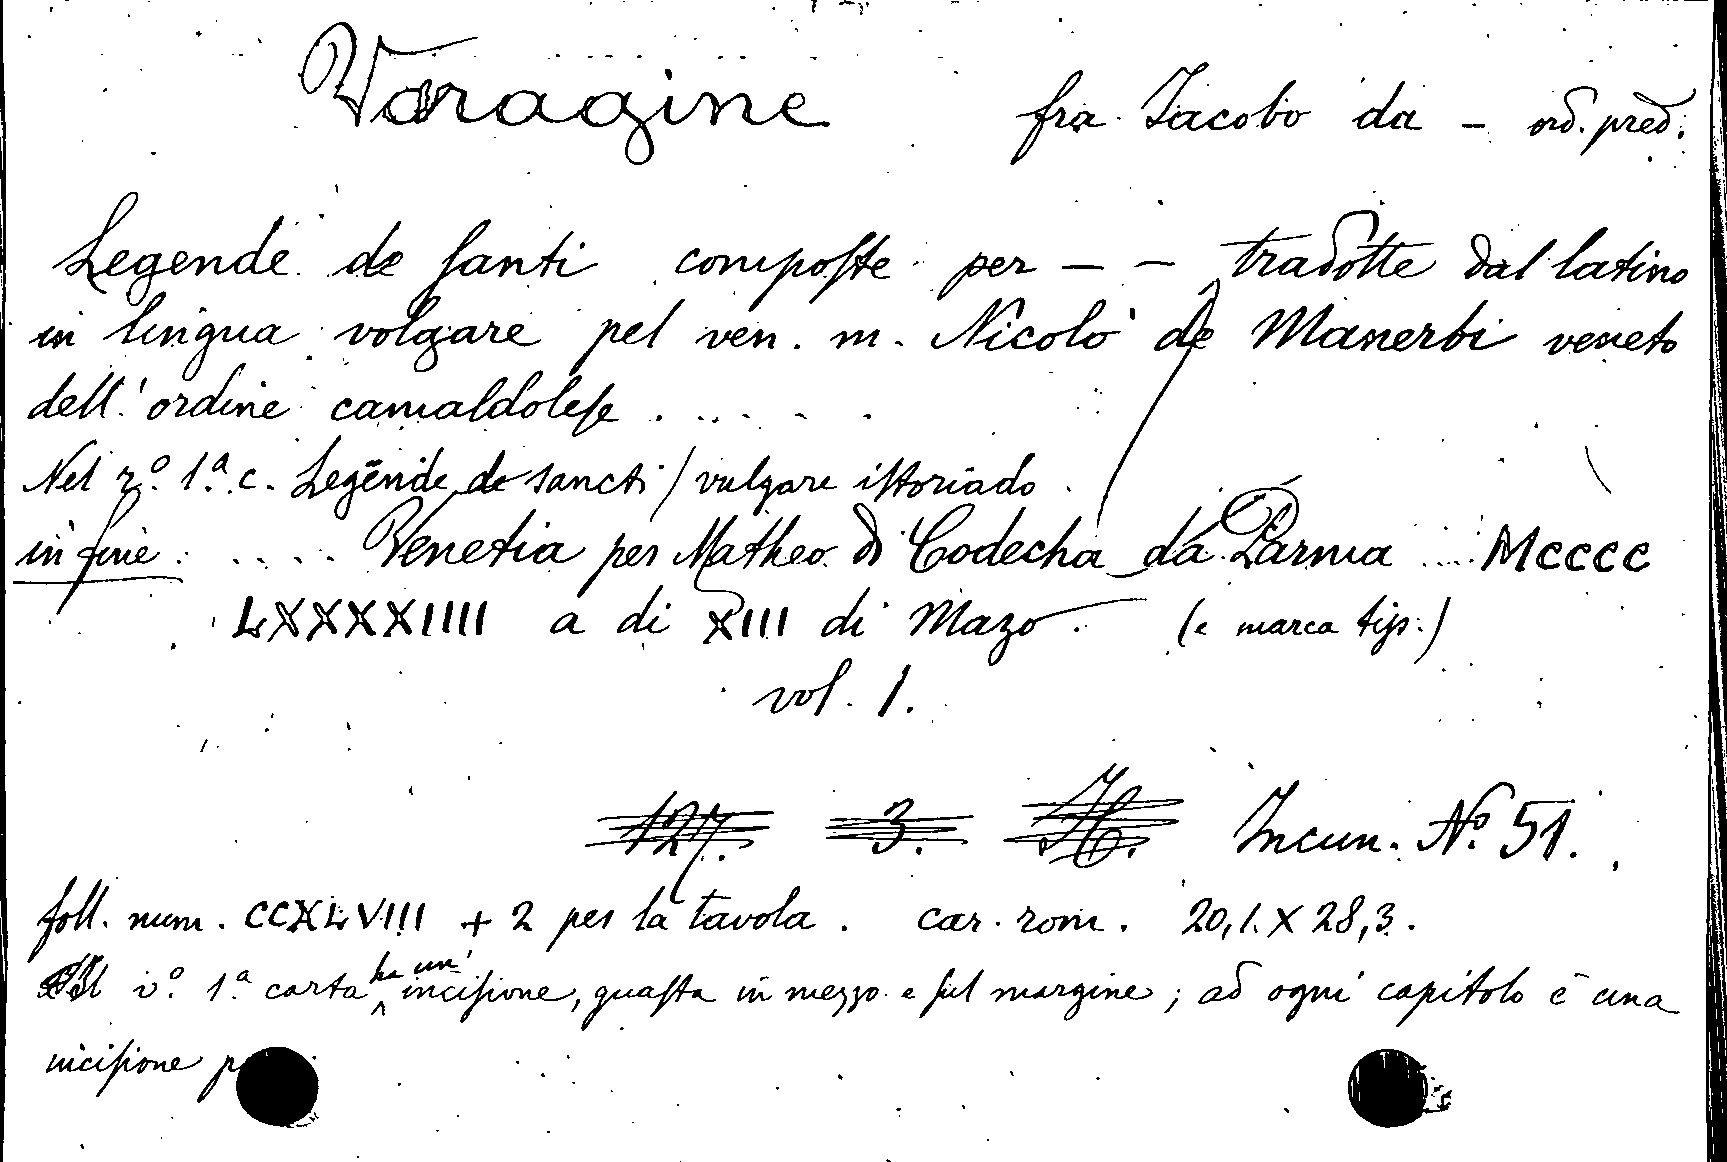 Varagine fra Jacobo da – ord. pred.
Legende de santi composte per – – tradotte dal latino
in lingua volgare pel ven. m. Nicolò de Manerbi veneto
dell'ordine camaldolese . . . . . .
Nel r.º 1.ª c. Legēnde de sancti / vulgare istoriado
in fine : . . . . Venetia per Matheo di Codecha da Parma ... MCCCC
LXXXXIIII a di XIII di Mazo. (e marca tip.)
vol. 1.
127. 3. Incun. Nº 51.
foll. num. CCXLVIII + 2 per la tavola. car. rom. 20,1 X 28,3.
v.º 1.ª carta ha un' incisione, guasta in mezzo e sul margine; ad ogni capitolo è una
incisione